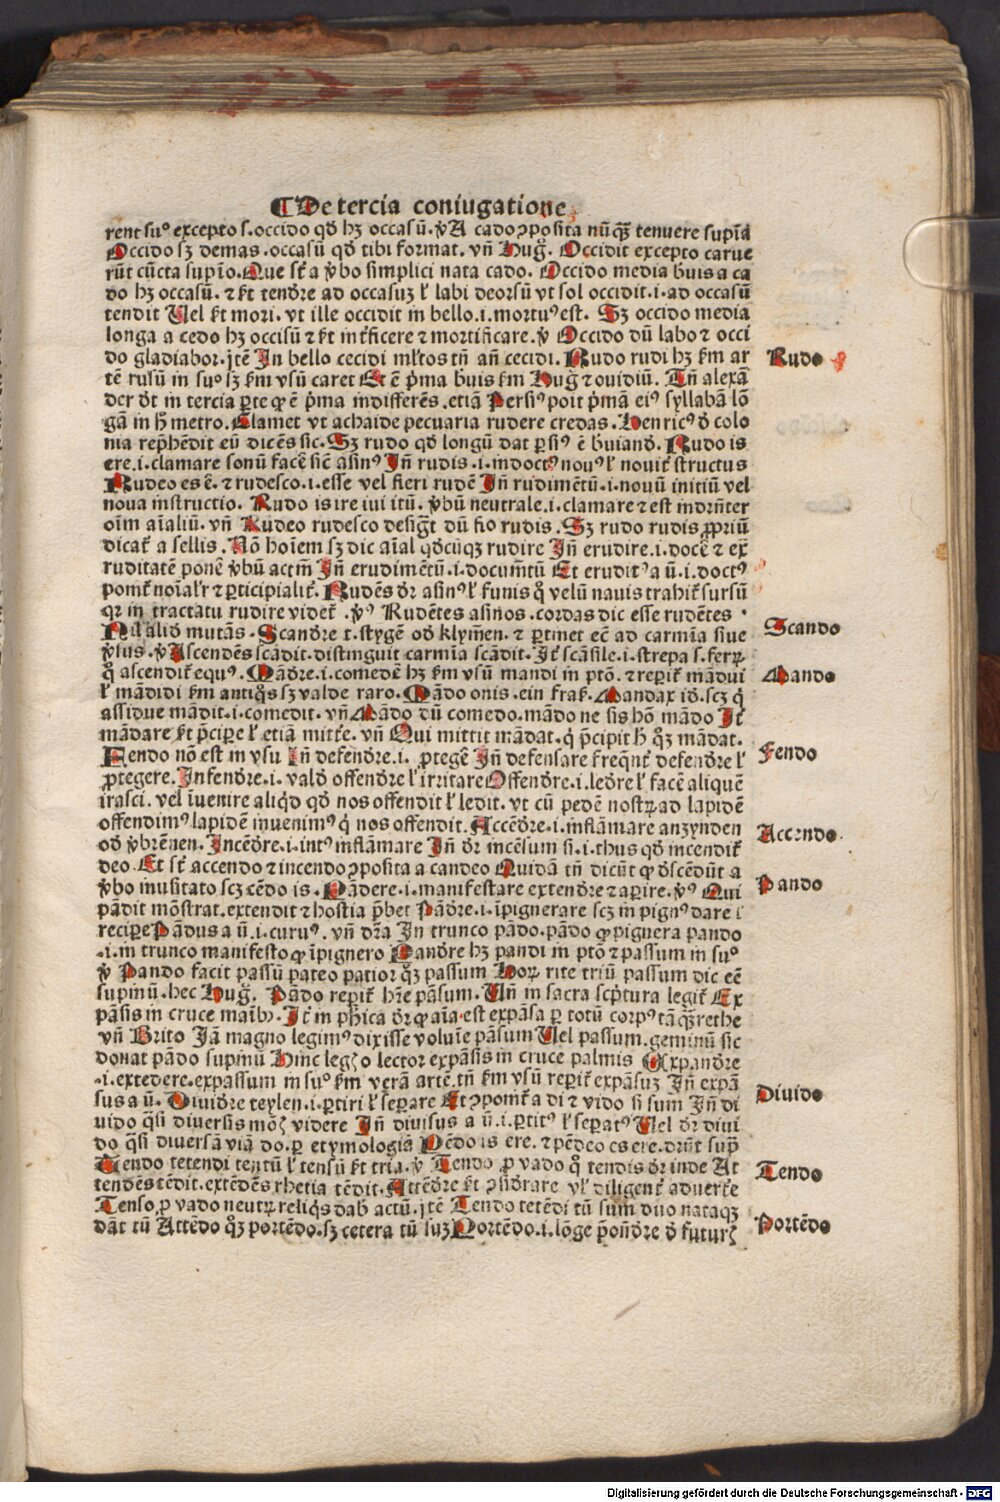 ¶ De tercia coniugatione
rent suꝰ excepto s. occido qđ hꝫ occasū. v̄ A cado ꝯposita nūqꝫ tenuere supīa
Occido sꝫ demas. occasū qđ tibi format. vn̄ Hug̃. Occidit excepto carue
rūt cūcta supīo. Que st̄ a v̄bo simplici nata cado. Occido media b̄uis a ca
do hꝫ occasū. ⁊ ē tendẽre ad occasuꝫ ł labi deorsū vt sol occidit .i. ad occasū
tendit Vel ē mori. vt ille occidit in bello .i. mortuꝰ est. Sꝫ occido media
longa a cedo hꝫ occisū ⁊ ē int̄ficere ⁊ mortificare. v̄ Occido dū labo ⁊ occi
do gladiabor. jtē In bello cecidi mĺtos tn̄ an̄ cecidi. Rudo rudi hꝫ ẜm ar
tē rusū in suꝰ sꝫ ẜm vsū caret Et ē p̄ma b̄uis ẜm Hug̃ ⁊ ouidiū. Tn̄ alexā
der dt̄ in tercia ꝑte ꝙ ē p̄ma indifferēs. etiā Persiꝰ poit p̄mā eiꝰ syllabā lō
gā in h̄ metro. Clamet vt achaide pecuaria rudere credas. Henricꝰ đ colo
nia rep̄hēdit eū dicēs sic. Sꝫ rudo qđ longū dat ꝑsiꝰ ē b̄uianđ. Rudo is
ere .i. clamare sonū facē sic̄ asinꝰ Jn̄ rudis .i. indoctꝰ nouꝰ ł nouit̄ structus
Rudeo es ē. ⁊ rudesco .i. esse vel fieri rudē Jn̄ rudimētū .i. nouū initiū vel
noua instructio. Rudo is ire iui itū. v̄bū neutrale .i. clamare ⁊ est indrn̄ter
oīm aīaliū. vn̄ Rudeo rudesco desig̃t dū fio rudis. Sꝫ rudo rudis ꝓpriū
dicat̄ a sellis. Nō hoīem sꝫ dic aīal qđcūqꝫ rudire Jn̄ erudire .i. docē ⁊ ex̄
ruditatē ponē v̄bū actm̄ Jn̄ erudimētū .i. documt̄ū Et eruditꝰ a ū .i. doctꝰ
pomt̄ noīaĺr ⁊ ꝑticipialit̄. Rudēs dr̄ asinꝰ ł funis q̊ velū nauis trahit̄ sursū
qr in tractatu rudire videt̄. v̄ꝰ Rudētes asinos. cordas dic esse rudētes.
Nil aliđ mutās. Scandre t. stygē ođ klym̄en. ⁊ ꝑtinet eē ad carmīa siue
v̄sus. v̄ Ascendēs scādit. distinguit carmīa scādit. Jt̄ scāsile .i. strepa s. ferꝝ
q̊ ascendit̄ equꝰ. Mādre .i. comedē hꝫ ẜm vsū mandi in ptō. ⁊ reperit̄ mādui
ł mādidi ẜm antiq̊s sꝫ valde raro. Mādo onis. ein fraß. Mandax iđ. scꝫ q̇
assidue mādit .i. comedit. vn̄ Mādo dū comedo. mādo ne sis hō mādo Jt̄
mādare ē p̄cipe ł etiā mittē. vn̄ Qui mittit mādat. q̇ p̄cipit h̄ q̊ꝫ mādat.
Fendo nō est in vsu Jn̄ defendre .i. ꝓtegē Jn̄ defensare freqn̄t̄ defendre ł
ꝓtegere. Infendre .i. valđ offendre ł irritare Offendre .i. ledre ł facē aliquē
irasci. vel īuenire aliq̇d qđ nos offendit ł ledit. vt cū pedē nostꝝ ad lapidē
offendimꝰ lapidē inuenimꝰ q̇ nos offendit. Accēdre .i. inflāmare anzynden
ođ v̄brēnen. Incēdre .i. intꝰ inflāmare Jn̄ dr̄ incēsum si .i. thus qđ incendit̄
deo. Et st̄ accendo ⁊ incendo ꝯposita a candeo Quidā tn̄ dicūt ꝙ dscēdūt a
v̄bo inusitato scꝫ cēdo is. Pādere .i. manifestare extendre ⁊ aꝑire. v̄ꝰ Qui
pādit mōstrat. extendit ⁊ hostia p̄bet Pādre .i. īpignerare scꝫ in pignꝰ dare ł
recipe Pādus a ū .i. curuꝰ. vn̄ dr̄a In trunco pādo. pādo ꝙ pignera pando
.i. in trunco manifesto ꝙ īpignero Pandre hꝫ pandi in ptō ⁊ passum in suꝰ
v̄ Pando facit passū pateo patior q̊ꝫ passum Hoꝝ rite triū passum dic eē
supinū. hec Hug̃. Pādo reperit̄ hr̄e pāsum. Vn̄ in sacra scp̄tura legit̄ Ex
pāsis in cruce manibꝰ. Jt̄ in phīca dr̄ ꝙ aīa est expāsa ꝑ totū corpꝰ tāqꝫ rethe
vn̄ Brito Jā magno legimꝰ dixisse voluīe pāsum Vel passum. geminū sic
donat pādo supinū Hinc legꝫ o lector expāsis in cruce palmis Expandre
.i. extēdere. expassum in suꝰ ẜm verā artē. tn̄ ẜm vsū reperit̄ expāsuꝫ Jn̄ expā
sus a ū. Diuidre teylen .i. ꝑtiri ł seꝑare Et ꝯpomt̄ a di ⁊ vido si sum Jn̄ di
uido qs̄i diuersis mōꝫ videre Jn̄ diuisus a ū .i. ꝑtitꝰ ł seꝑatꝰ Vel dr̄ diui
do qs̄i diuersā viā do. ꝑ etymologiā Pēdo is ere. ⁊ pēdeo es ere. drūt supꝰ
Tendo tetendi tentū ł tensū ē tria. v̄ Tendo ꝓ vado q̊ tendis dr̄ inde At
tendēs tēdit. extēdēs rhetia tēdit. Attēdre ē ꝯsidrare vĺ diligent̄ aduert̄e
Tenso ꝓ vado neutꝝ reliq̊s dab actū. jtē Tendo tetēdi tū sum duo nataqꝫ
dāt tū Attēdo q̊ꝫ portēdo. sꝫ cetera tū suꝫ Portēdo .i. lōge pōn̄dre đ futurꝭ
Rudo
Scando
Mando
Fendo
Accendo
Pando
Diuido
Tendo
Portēdo
Digitalisierung gefördert durch die Deutsche Forschungsgemeinschaft - DFG